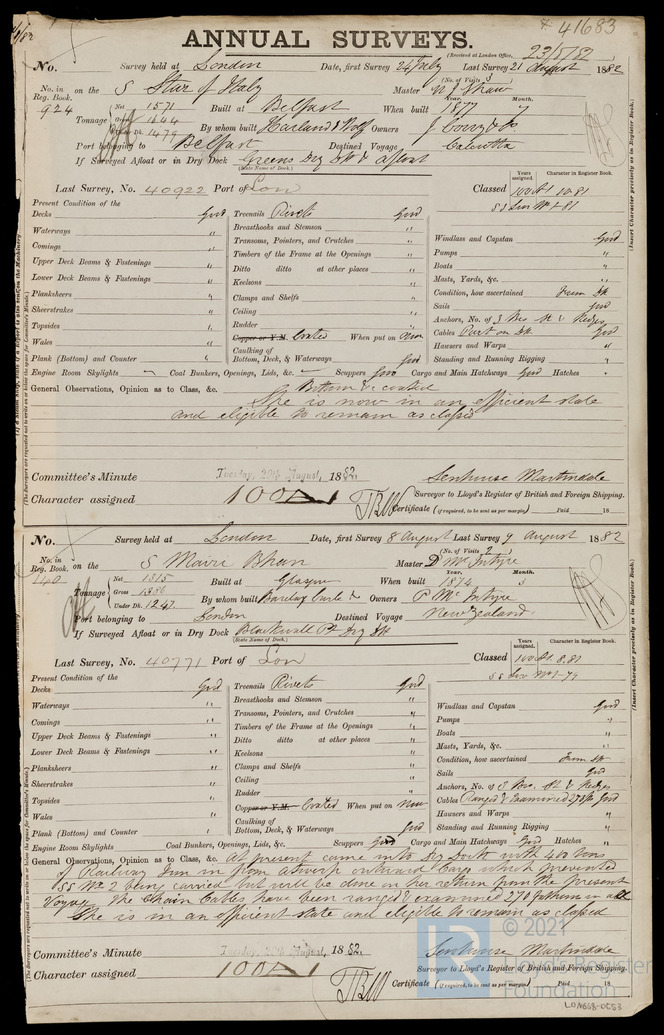 * 41683
ANNUAL SURVEYS.
(Received at London Office, 23/8/82
No. Survey held at London Date, first Survey 24 July Last Survey 21 August 1882
(No. of Visits 3)
No. in Reg. Book. on the S Star of Italy Master W J Shaw
924 Year. Month.
Tonnage Net 1571 Gross 1644 Under Dk. 1479 Built at Belfast When built 1877 7
By whom built Harland & Wolf Owners J Corry & Co
Port belonging to Belfast Destined Voyage Calcutta
If Surveyed Afloat or in Dry Dock Greens Dry Dk & afloat
(State Name of Dock.)
Last Survey, No. 40922 Port of Lon Classed 100A1 10.81
Years assigned. Character in Register Book.
(Insert Character precisely as in Register Book.)
Present Condition of the
Decks Good Treenails Rivets Good
Waterways " Breasthooks and Stemson " Windlass and Capstan Good
Comings " Transoms, Pointers, and Crutches " Pumps "
Upper Deck Beams & Fastenings " Timbers of the Frame at the Openings " Boats "
Lower Deck Beams & Fastenings " Ditto ditto at other places " Masts, Yards, &c. "
Planksheers " Keelsons " Condition, how ascertained From Dk
Sheerstrakes " Clamps and Shelfs " Sails Good
Topsides " Ceiling " Anchors, No. of 3 Brs
Wales " Rudder " Cables Part on Dk Good
Plank (Bottom) and Counter " Copper or Y.M. Coated When put on Now Hawsers and Warps "
Caulking of Bottom, Deck, & Waterways Good Standing and Running Rigging "
Engine Room Skylights Coal Bunkers, Openings, Lids, &c. Scuppers Good Cargo and Main Hatchways Good Hatches "
General Observations, Opinion as to Class, &c. Bottom & coated
She is now in an efficient state
and eligible to remain as classed
Committee's Minute Tuesday, 29th August, 1882.
Character assigned 100A1
Senhouse Martindale
Surveyor to Lloyd's Register of British and Foreign Shipping.
Certificate (if required, to be sent as per margin) Paid 18
No. Survey held at London Date, first Survey 8 August Last Survey 9 August 1882
(No. of Visits 2)
No. in Reg. Book. on the S Mairi Bhan Master D McIntyre
140 Year. Month.
Tonnage Net 1315 Gross 1386 Under Dk. 1247 Built at Glasgow When built 1874 3
By whom built Barclay Curle & Co Owners P McIntyre
Port belonging to London Destined Voyage New Zealand
If Surveyed Afloat or in Dry Dock Blackwall Pt Dry Dk
(State Name of Dock.)
Last Survey, No. 40771 Port of Lon Classed 100A1 8.81
Years assigned. Character in Register Book.
(Insert Character precisely as in Register Book.)
Present Condition of the
Decks Good Treenails Rivets Good
Waterways " Breasthooks and Stemson " Windlass and Capstan Good
Comings " Transoms, Pointers, and Crutches " Pumps "
Upper Deck Beams & Fastenings " Timbers of the Frame at the Openings " Boats "
Lower Deck Beams & Fastenings " Ditto ditto at other places " Masts, Yards, &c. "
Planksheers " Keelsons " Condition, how ascertained From Dk
Sheerstrakes " Clamps and Shelfs " Sails Good
Topsides " Ceiling " Anchors, No. of 3 Brs
Wales " Rudder " Cables Ranged & Examined 270 fs Good
Plank (Bottom) and Counter " Copper or Y.M. Coated When put on Now Hawsers and Warps "
Caulking of Bottom, Deck, & Waterways Good Standing and Running Rigging "
Engine Room Skylights Coal Bunkers, Openings, Lids, &c. Scuppers Good Cargo and Main Hatchways Good Hatches "
General Observations, Opinion as to Class, &c. At present came into Dry Dock with 400 tons
of Railway Iron in from Antwerp outward Cargo which prevented
SS No 2 being carried but will be done on her return from the present
Voyage. The Chain Cables have been ranged & examined 270 fathoms in all
She is in an efficient state and eligible to remain as classed
Committee's Minute Tuesday, 29th August, 1882
Character assigned 100A1
Senhouse Martindale
Surveyor to Lloyd's Register of British and Foreign Shipping.
Certificate (if required, to be sent as per margin) Paid 18
LR © 2021
Lloyd's Register
Foundation
LON668-0053